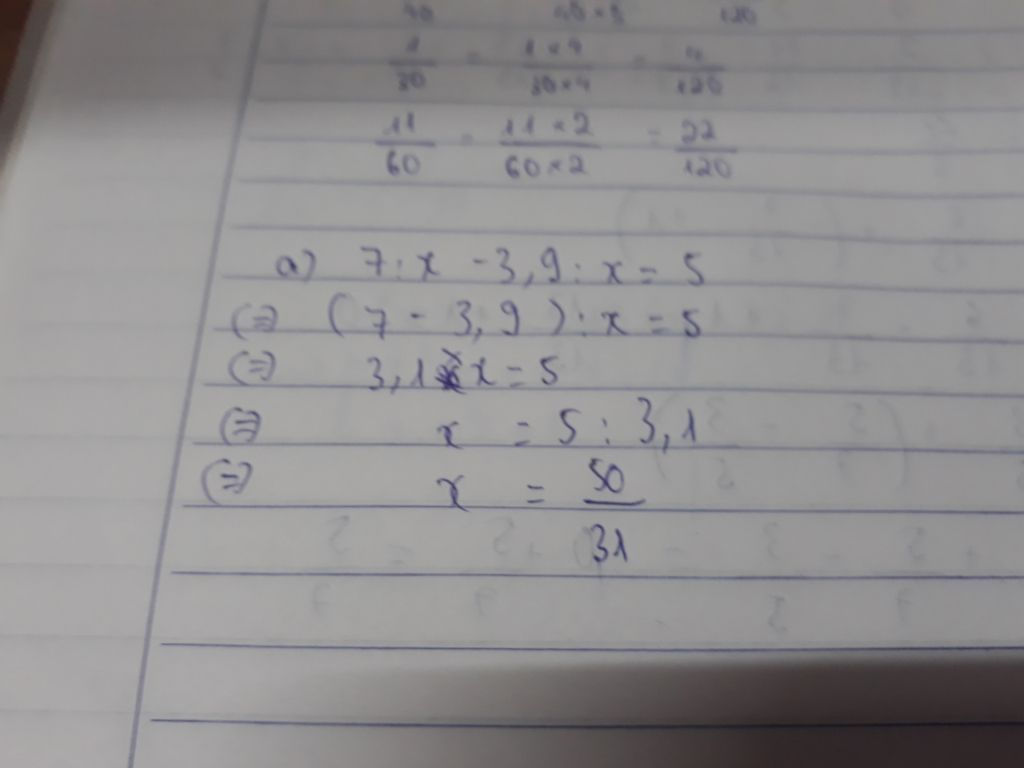 1/30 = 1 × 4/30 × 4 = 4/120
11/60 = 11 × 2/60 × 2 = 22/120
a) 7 : x - 3,9 : x = 5
(=) (7 - 3,9) : x = 5
(=) 3,1 × x = 5
(=) x = 5 : 3,1
(=) x = 50/31